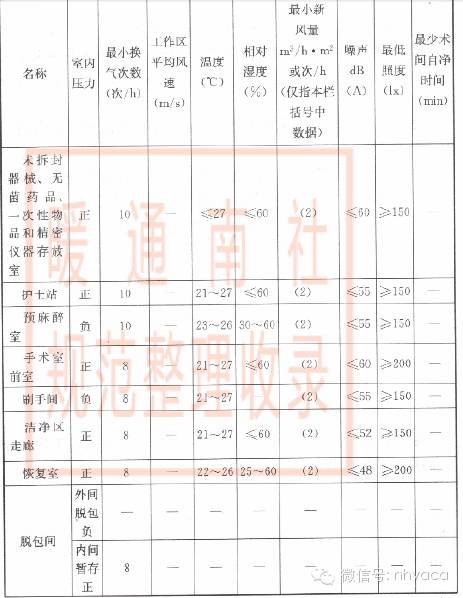 名称 室内压力 最小换气次数(次/h) 工作区平均风速(m/s) 温度(℃) 相对湿度(%) 最小新风量m³/h·m²或次/h(仅指本栏括号中数据) 噪声dB(A) 最低照度(lx) 最少术间自净时间(min)
未拆封器械、无菌药品、一次性物品和精密仪器存放室 正 10 — ≤27 ≤60 (2) ≤60 ≥150 —
护士站 正 10 — 21~27 ≤60 (2) ≤55 ≥150 —
预麻醉室 负 10 — 23~26 30~60 (2) ≤55 ≥150 —
手术室前室 正 8 — 21~27 ≤60 (2) ≤60 ≥200 —
刷手间 负 8 — 21~27 — (2) ≤55 ≥150 —
洁净区走廊 正 8 — 21~27 ≤60 (2) ≤52 ≥150 —
恢复室 正 8 — 22~26 25~60 (2) ≤48 ≥200 —
脱包间 外间脱包负 — — — — — — — —
内间暂存正 8 — — — — — — —
暖通南社
规范整理收录
微信号: nhyaca